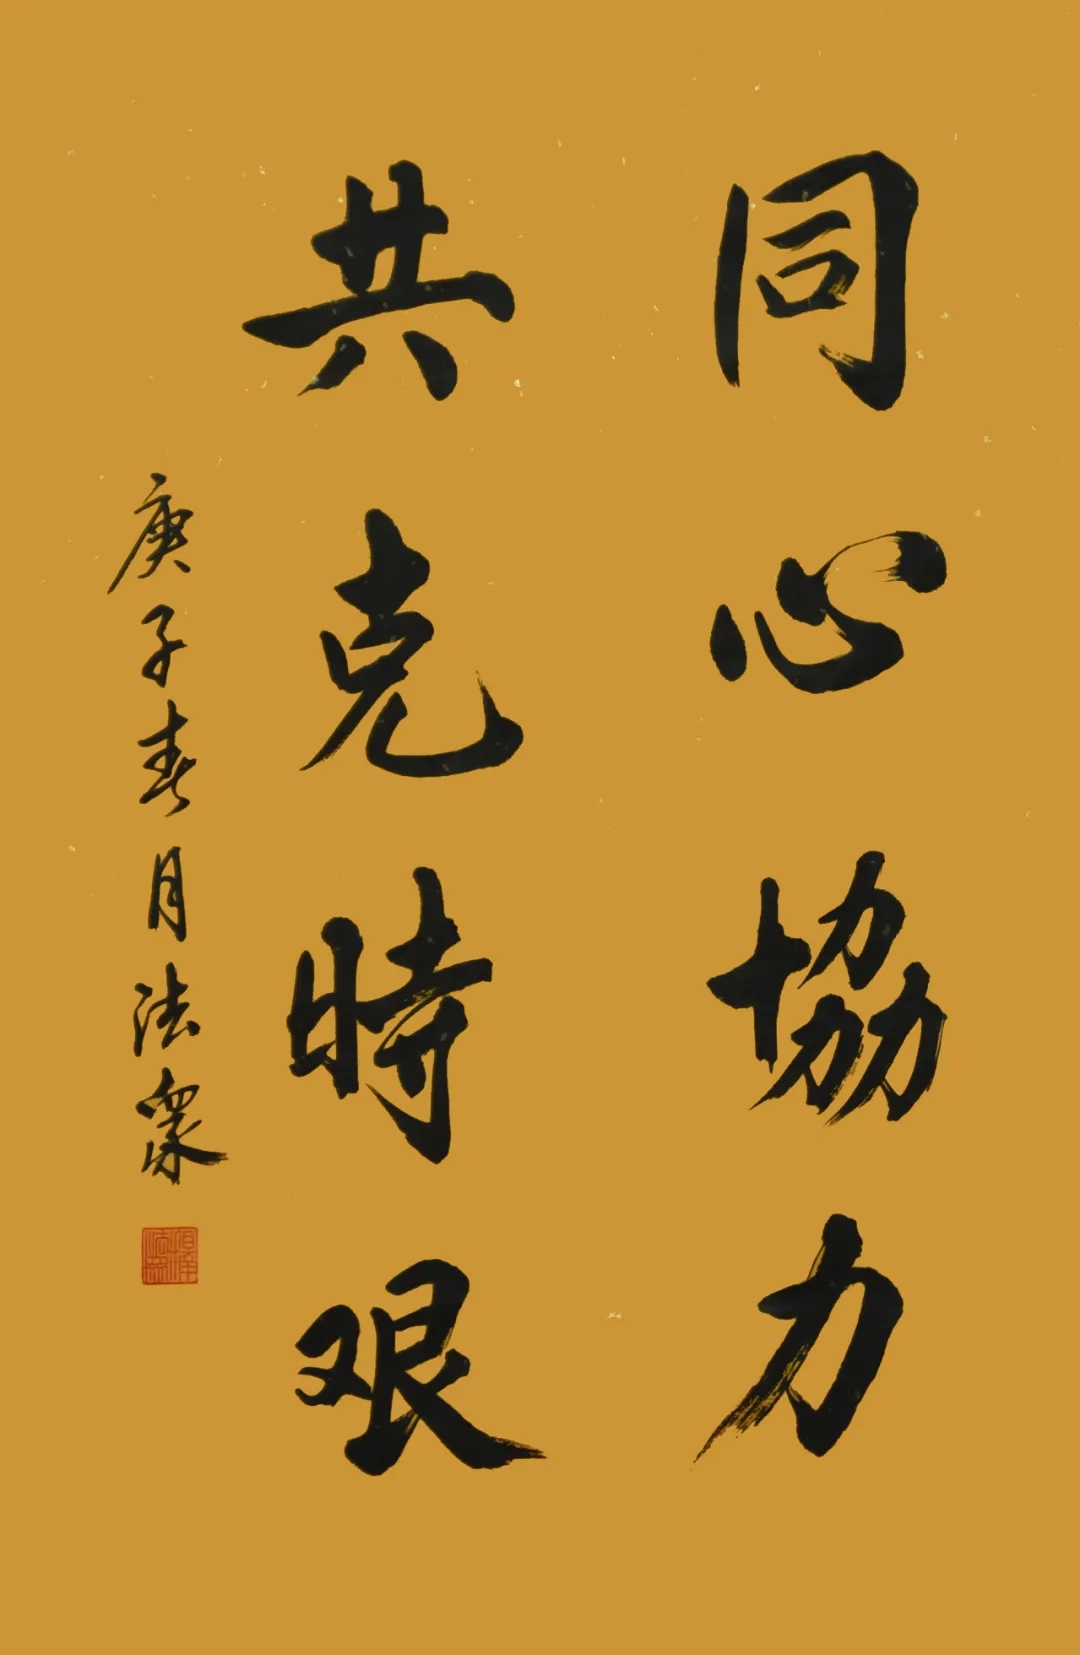 同心協力
共克時艰
庚子春月法眾